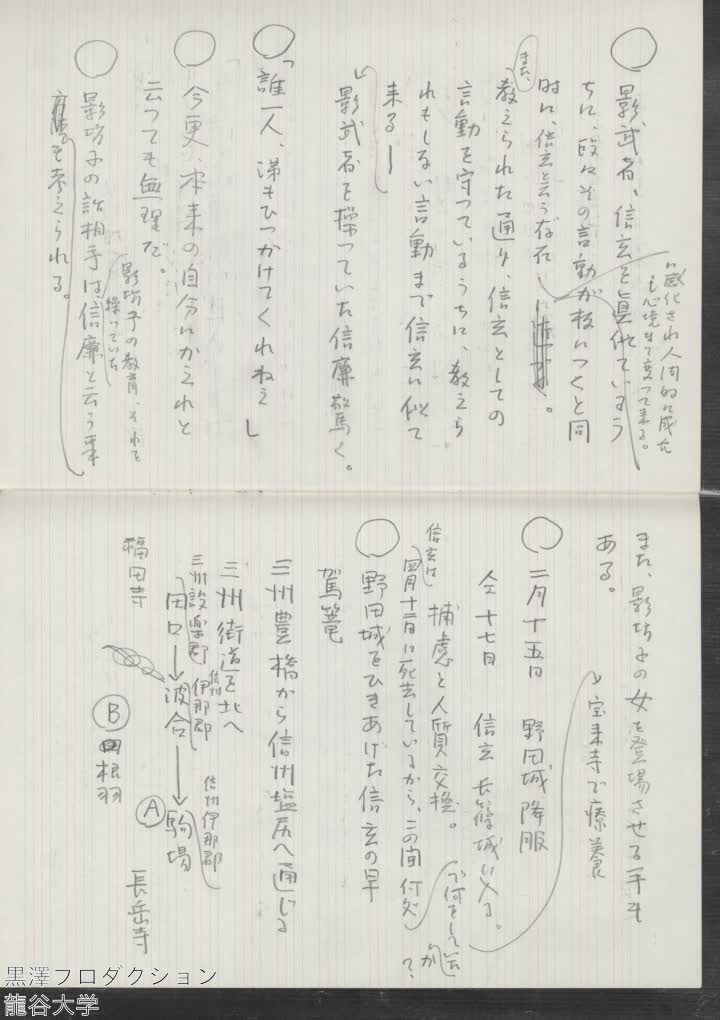 影武者、信玄を真似ているう
ちに、段々その言動が板につくと同
時に、信玄と言う存在に
に感化され人間的に成た
心境まで変って来る。
また、
教えられた通り、信玄としての
言動を守っているうちに、教えら
れもしない言動まで信玄に似て
来る――
影武者を操っていた信廉驚く。
「誰一人、涙もひっかけてくれねえ」
今更、本来の自分にかえれと
云っても無理だ。
影坊子の教育、それを
操っていた
影坊子の話相手は信廉と云う案
も考えられる。
また、影坊子の女を登場させる手も
ある。
宝来寺で療養
二月十五日 野田城降服
仝十七日 信玄 長篠城に入る。
捕虜と人質交換。
信玄は
四月十二日に死去しているから、この間何処
で何をしていたか
て、
野田城をひきあげた信玄の早
駕篭
三州豊橋から信州塩尻へ通じる
三州街道を北へ
三州設楽郡 信州伊那郡
信州伊那郡
田口→波合→駒場
Ⓐ
Ⓑ 根羽
福田寺
長岳寺
黒澤プロダクション
龍谷大学